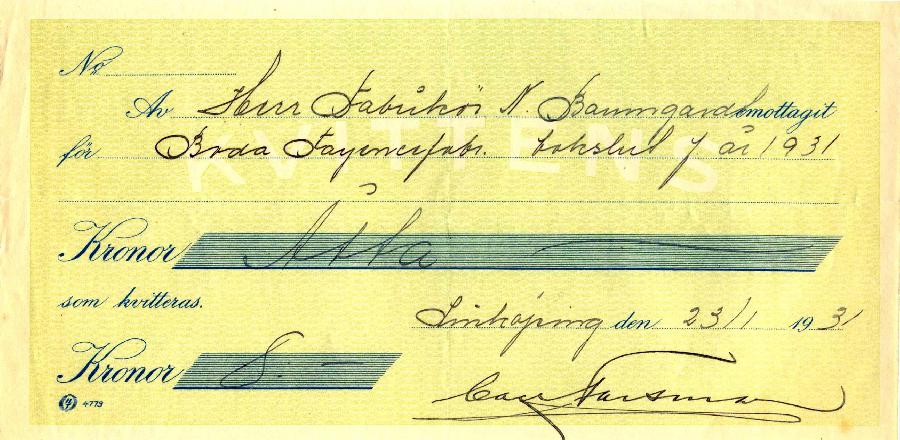 No
Av Herr Fabrikör N. Baumgardt emottagit
KVITTENS
för Boda Fayencefabr. bokslut / år 1931
Kronor Åtta
som kvitteras.
Linköping den 23/1 1931
Kronor 8.-
4773
Carl Forsman